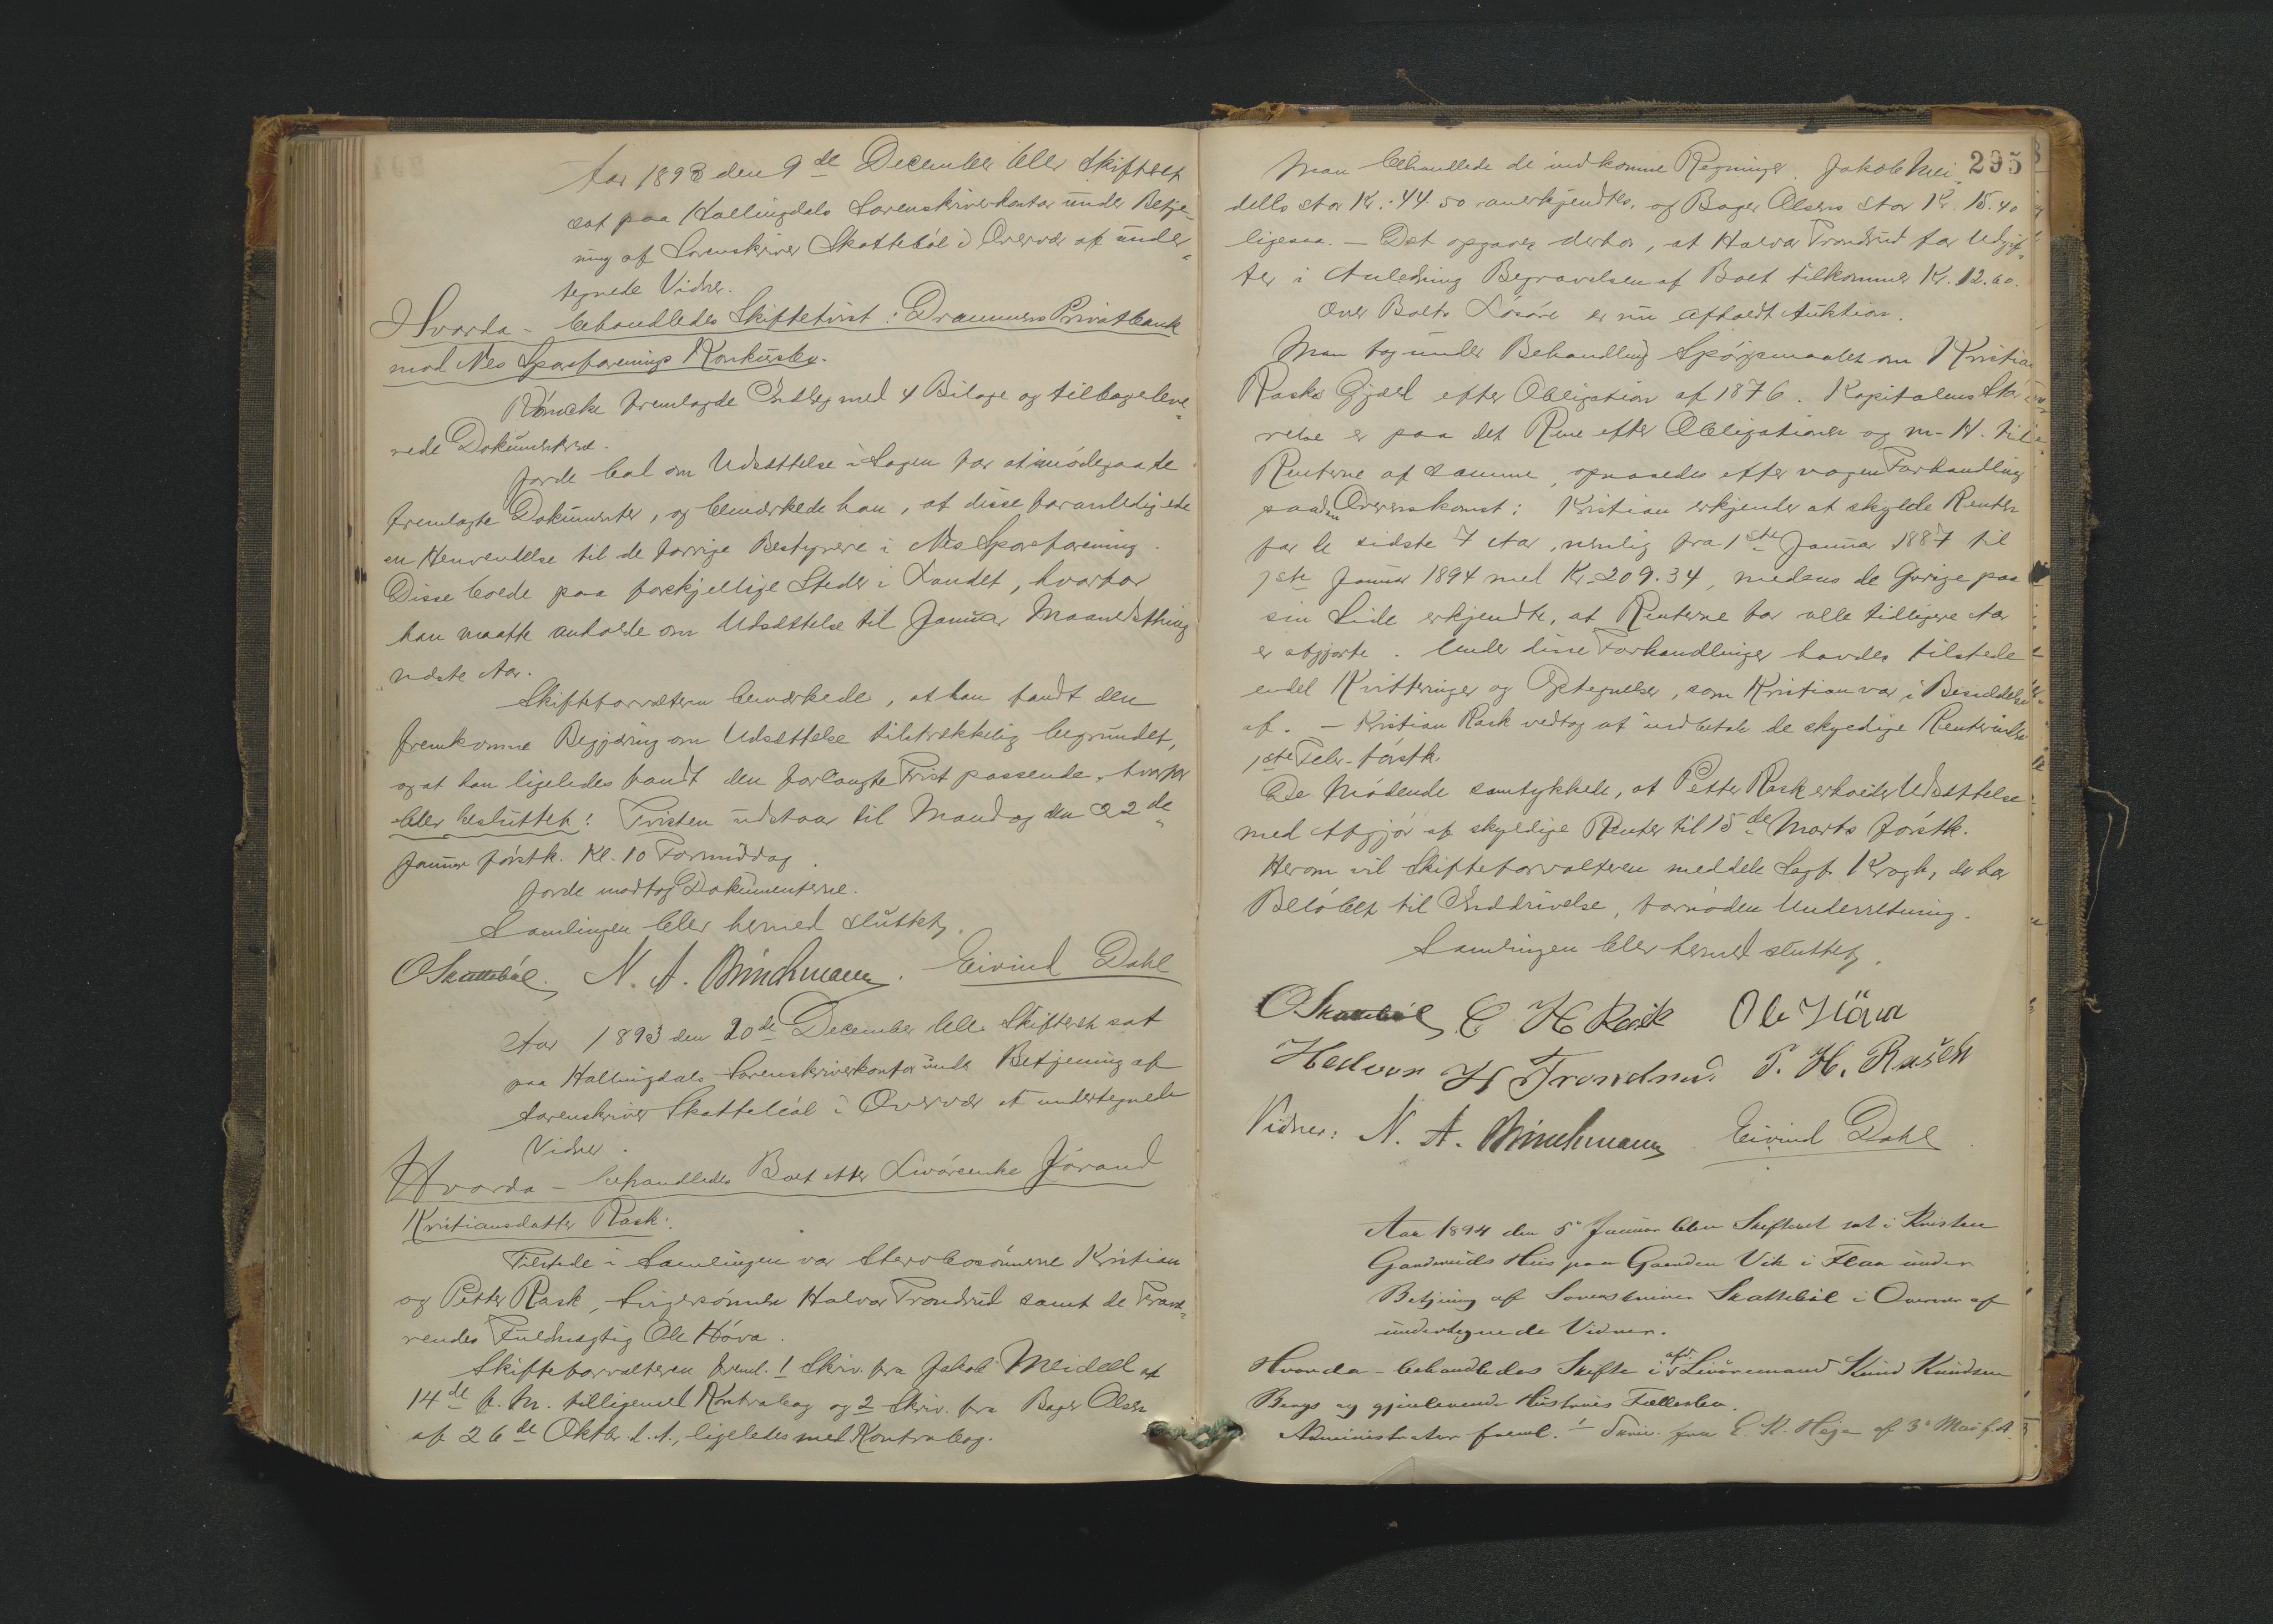 Aar 1893 den 9de December blev Skifteret
sat paa Hallingdals Sorenskriverkontor under Betje-
ning af Sorenskriver Skattebøl i Overvær af under-
tegnede Vidner.
Hvorda - behandledes Skiftetvist: Drammens Privatbank
mod Nes Spareforenings Konkursbo.
fremlagde Indlæg med 4 Bilage og tilbageleve-
rede Dokumenterne.
Jorde bad om Udsættelse i Sagen for at imødegaa de
fremlagte Dokumenter, og bemærkede han, at disse foranledigede
en Henvendelse til de forrige Bestyrere i Nes Spareforening.
Disse boede paa forskjellige Steder i Landet, hvorfor
han maatte anholde om Udsættelse til Januar Maanedsthing
næste Aar.
Skifteforvalteren bemærkede, at han fandt den
fremkomne Begjæring om Udsættelse tilstrækkelig begrundet,
og at han ligeledes fandt den forlangte Frist passende, hvorfor
blev besluttet: Tvisten udstaar til Mandag den 22de
Januar førstk. Kl. 10 Formiddag.
Jorde modtog Dokumenterne.
Samlingen blev hermed sluttet.
OSkattebøl. N. A. Brinchmann. Eivind Dahl
Aar 1893 den 20de December blev Skifteret sat
paa Hallingdals Sorenskriverkontor under Betjening af
Sorenskriver Skattebøl i Overvær af undertegnede
Vidner.
Hvorda - behandledes Boet efter Livøreenke Jørand
Kristiansdatter Rask:
Tilstede i Samlingen var Stervbosønnerne Kristian
og Petter Rask, Svigersønnen Halvor Trondrud samt de Fravæ-
rendes Fuldmægtig Ole Høva.
Skifteforvalteren freml. 1 Skriv. fra Jakob Meidell af
14de f. M. tilligemed Kontrabog og 2 Skriv. fra Bager Olsen
af 26de Oktbr d. A., ligeledes med Kontrabog.
295
Man behandlede de indkomne Regninger. Jakob Mei-
dells stor Kr. 44.50 anerkjendtes, og Bager Olsens stor Kr. 15.40
ligesaa. - Det opgaves derhos, at Halvor Trondrud for Udgif-
ter i Anledning Begravelsen af Boet tilkommer Kr. 12.60.
Over Boets Løsøre er nu afholdt Auktion.
Man tog under Behandling Spørgsmaalet om Kristian
Rasks Gjæld efter Obligation af 1876. Kapitalens Stør-
relse er paa det Rene efter Obligationen og m. H. til
Renterne af samme, opnaaedes efter nogen Forhandling
saadan Overenskomst: Kristian erkjender at skylde Renter
for de sidste 7 Aar, nemlig fra 1ste Januar 1887 til
1ste Januar 1894 med Kr. 209.34, medens de Øvrige paa
sin Side erkjendte, at Renterne for alle tidligere Aar
er afgjorte. Under disse Forhandlinger havdes tilstede
endel Kvitteringer og Optegnelser, som Kristian var i Besiddelse
af. - Kristian Rask vedtog at indbetale de skyldige Renter inden
1ste Febr. førstk.
De Mødende samtykkede, at Petter Rask erholder Udsættelse
med Afgjør af skyldige Renter til 15de Marts førstk.
Herom vil Skifteforvalteren meddele Sagf. Krogh, der har
Beløbet til Inddrivelse, fornøden Underretning.
Samlingen blev hermed sluttet.
OSkattebøl C H Rask Ole Høva
Halvor H Trondrud. P. H. Rask
Vidner: N. A. Brinchmann Eivind Dahl
Aar 1894 den 5e Januar blev Skifteret sat i Kristen
Gandruds Hus paa Gaarden Vik i Flaa under
Betjening af Sorenskriver Skattebøl i Overvær af
undertegnede Vidner.
Hvorda - behandledes Skifte i afd. Livøremand Knud Knudsen
Bergs og gjenlevende Hustrues Fællesbo.
Administrator freml. 1 Skriv. fra E. K. Høge af 3e Mai f. A.